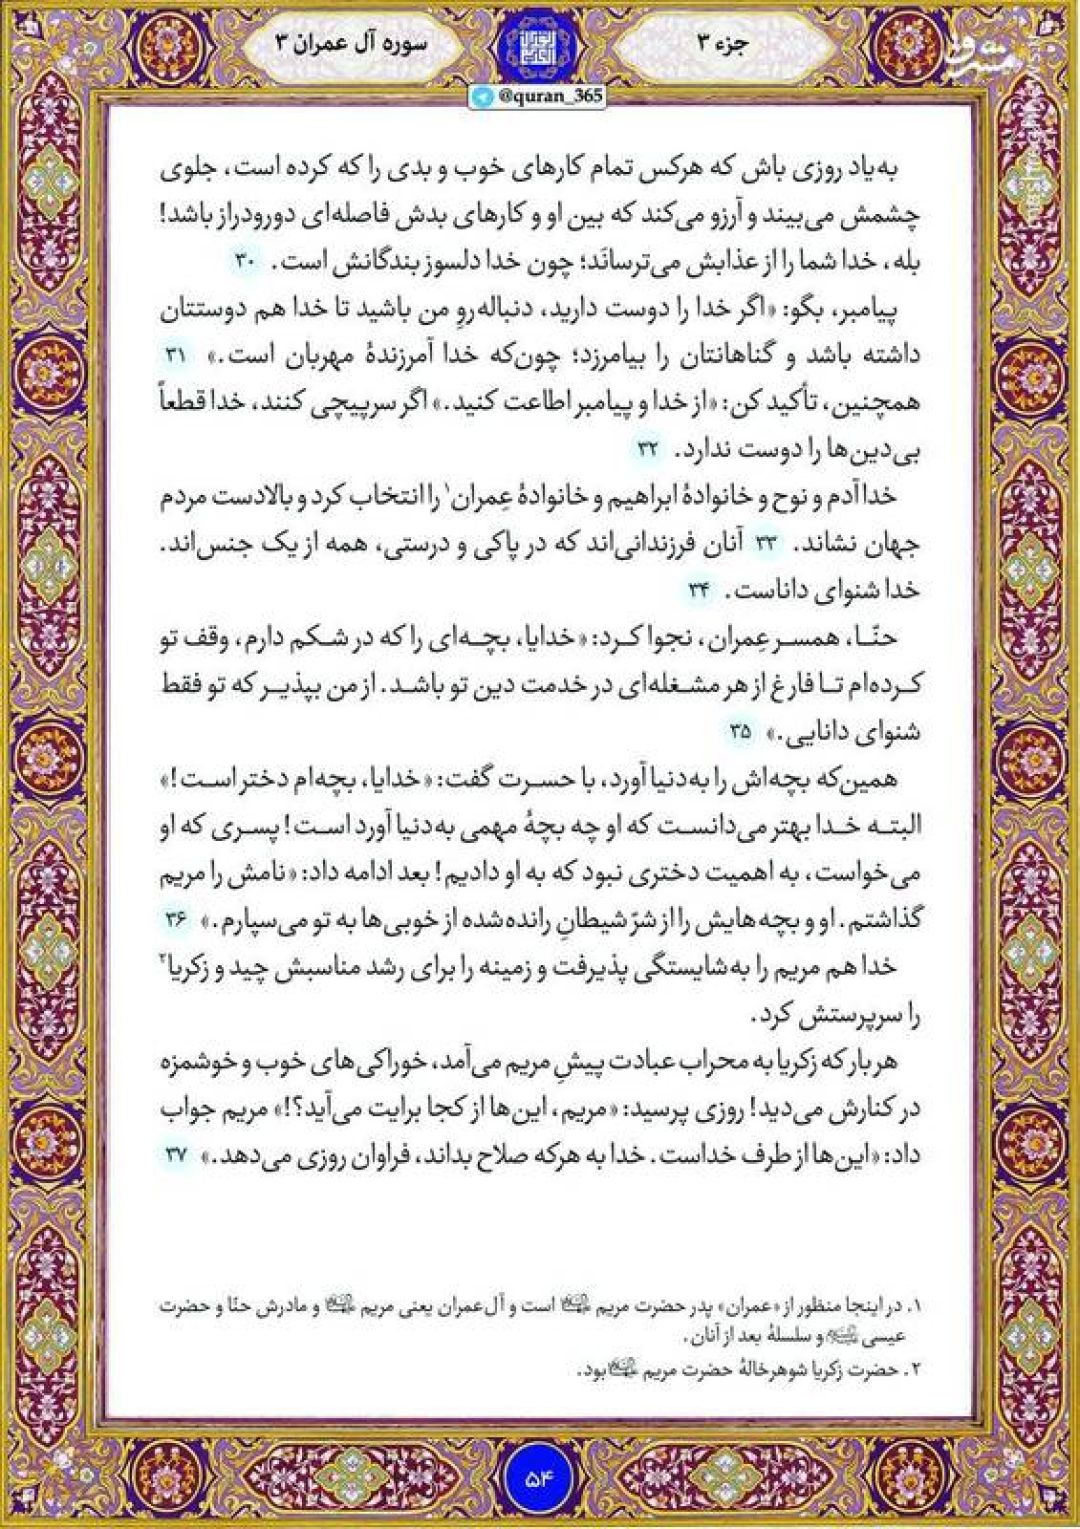 جزء ۳
سوره آل عمران ۳
@quran_365
مشرق
به‌یاد روزی باش که هرکس تمام کارهای خوب و بدی را که کرده است، جلوی
چشمش می‌بیند و آرزو می‌کند که بین او و کارهای بدش فاصله‌ای دورودراز باشد!
بله، خدا شما را از عذابش می‌ترسانَد؛ چون خدا دلسوز بندگانش است. ۳۰
پیامبر، بگو: «اگر خدا را دوست دارید، دنباله‌روِ من باشید تا خدا هم دوستتان
داشته باشد و گناهانتان را بیامرزد؛ چون‌که خدا آمرزندهٔ مهربان است.» ۳۱
همچنین، تأکید کن: «از خدا و پیامبر اطاعت کنید.» اگر سرپیچی کنند، خدا قطعاً
بی‌دین‌ها را دوست ندارد. ۳۲
خدا آدم و نوح و خانوادهٔ ابراهیم و خانوادهٔ عِمران۱ را انتخاب کرد و بالادست مردم
جهان نشاند. ۳۳ آنان فرزندانی‌اند که در پاکی و درستی، همه از یک جنس‌اند.
خدا شنوای داناست. ۳۴
حنّا، همسر عِمران، نجوا کرد: «خدایا، بچه‌ای را که در شکم دارم، وقف تو
کرده‌ام تا فارغ از هر مشغله‌ای در خدمت دین تو باشد. از من بپذیر که تو فقط
شنوای دانایی.» ۳۵
همین‌که بچه‌اش را به‌دنیا آورد، با حسرت گفت: «خدایا، بچه‌ام دختر است!»
البته خدا بهتر می‌دانست که او چه بچهٔ مهمی به‌دنیا آورد است! پسری که او
می‌خواست، به اهمیت دختری نبود که به او دادیم! بعد ادامه داد: «نامش را مریم
گذاشتم. او و بچه‌هایش را از شرّ شیطانِ رانده‌شده از خوبی‌ها به تو می‌سپارم.» ۳۶
خدا هم مریم را به‌شایستگی پذیرفت و زمینه را برای رشد مناسبش چید و زکریا۲
را سرپرستش کرد.
هر بار که زکریا به محراب عبادت پیشِ مریم می‌آمد، خوراکی‌های خوب و خوشمزه
در کنارش می‌دید! روزی پرسید: «مریم، این‌ها از کجا برایت می‌آید؟!» مریم جواب
داد: «این‌ها از طرف خداست. خدا به هرکه صلاح بداند، فراوان روزی می‌دهد.» ۳۷
۱. در اینجا منظور از «عمران» پدر حضرت مریم است و آل‌عمران یعنی مریم و مادرش حنّا و حضرت
عیسی و سلسلهٔ بعد از آنان.
۲. حضرت زکریا شوهرخالهٔ حضرت مریم بود.
۵۴